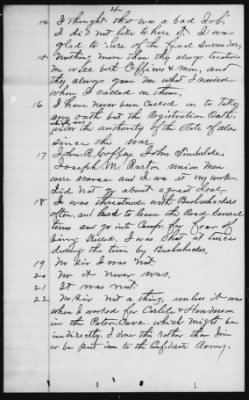 4
14 I thought that was a bad Job.
I did not like to hear of. I was
glad to hear of the final surrender,
15 Nothing more than they always treated
me well both Officers & men, and
they always gave me what I needed
when I called on them,
16 I have never been called on to take
any oath but the Registration Oath.
under the authority of the State of Ala
since the war
17 John R. Coffey, John Timberlake
Joseph M. Barton union men
were scarce and I was at my work
did not go about a great deal.
18 I was threatened with Bushwhackers
often, and had to leave the Road Several
times and go into Camp. for fear of
being Killed, I was shot at twice
during the time by Bushwhackers,
19 No Sir I was Not.
20 No it never was.
21 It was not.
22 No Sir not a thing, unless it was
when I worked for Carlile & Henderson
in the Peter Cave. which might be
indirectly. I done this rather than Join
or be put in to the Confederate Army.